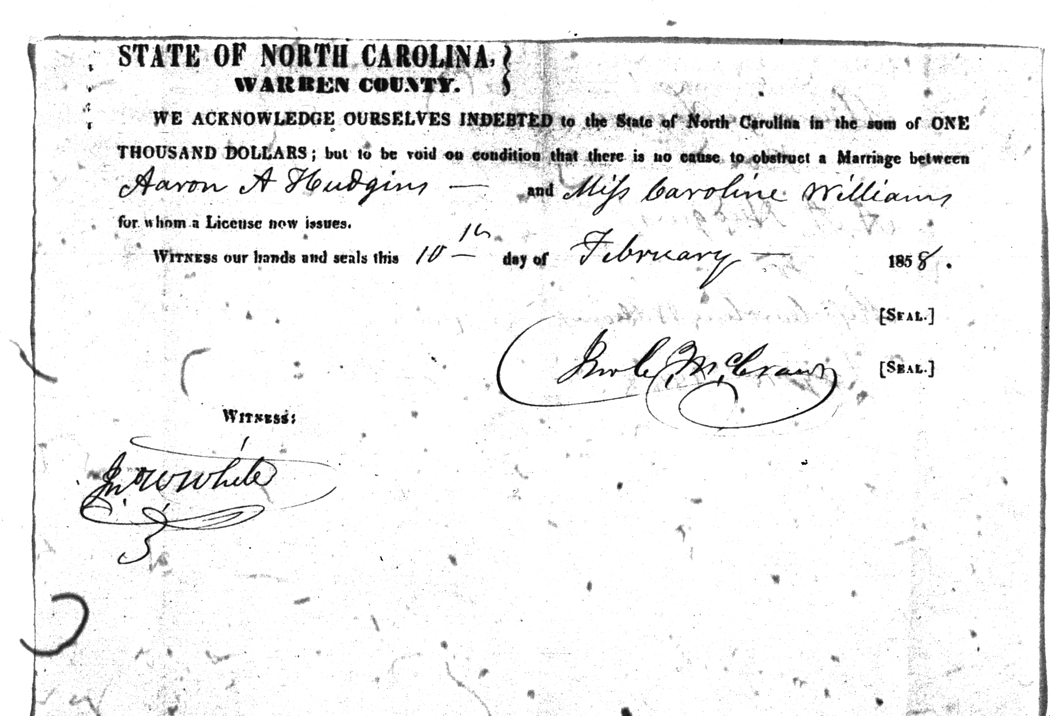 STATE OF NORTH CAROLINA,
WARREN COUNTY.
WE ACKNOWLEDGE OURSELVES INDEBTED to the State of North Carolina in the sum of ONE
THOUSAND DOLLARS; but to be void on condition that there is no cause to obstruct a Marriage between
Aaron A Hudgins — and Miss Caroline Williams
for whom a License now issues.
WITNESS our hands and seals this 10th day of February — 1858.
[SEAL.]
Jno C, McCraw [SEAL.]
WITNESS:
Jno W White